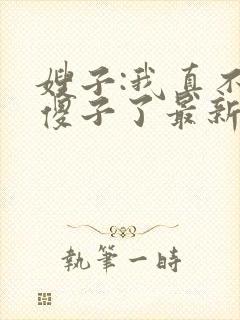 嫂子:我真不
傻子了最新
執筆一時